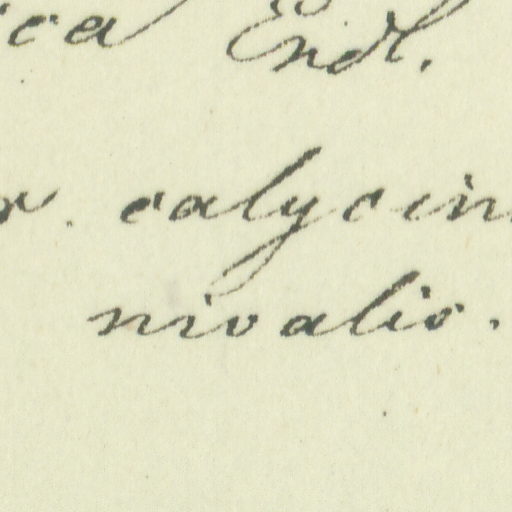 ica Endl.
r. calycin
nivalis.